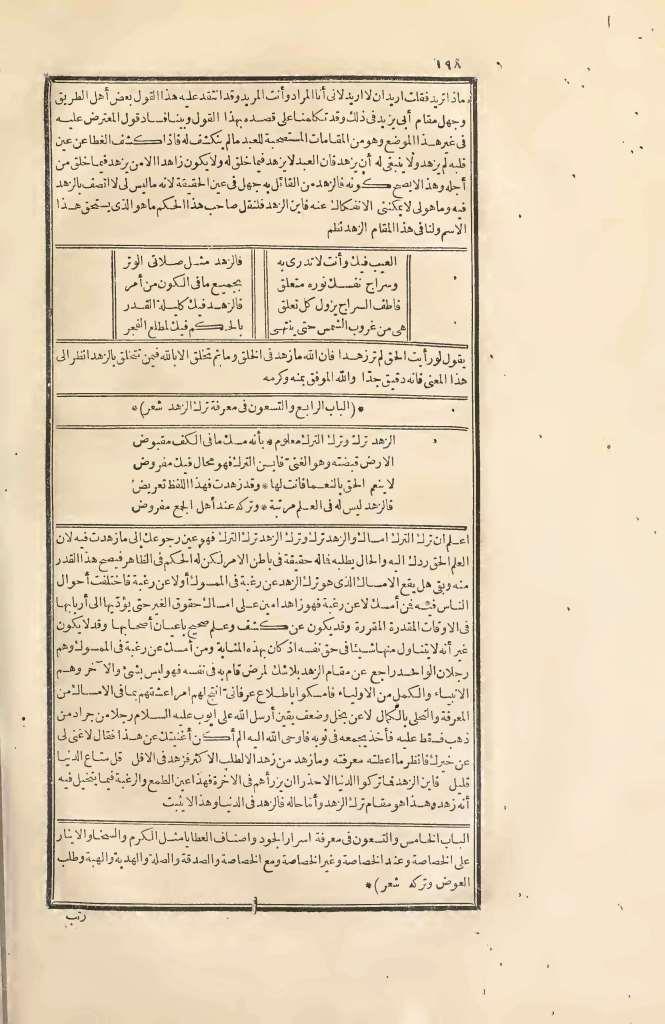 ١٩٨
ماذا تريد فقلت اريد ان لا اريد لانى أنا المراد وأنت المريد وقد انتقد عليه هذا القول بعض أهل الطريق
وجهل مقام أبى يزيد فى ذلك وقد تكلمنا على قصده بهذا القول وبينا فساد قول المعترض عليه
فى غير هذا الموضع وهو من المقامات المستصحبة للعبد مالم ينكشف له فاذا كشف الغطا عن عين
قلبه لم يزهد ولا ينبغى له أن يزهد فان العبد لا يزهد فيما خلق له ولا يكون زاهدا الا من يزهد فيما خلق من
أجله وهذا لا يصح كونه فالزهد من القائل به جهل فى عين الحقيقة لانه ما ليس لى لا اتصف بالزهد
فيه وما هو لى لا يمكننى الانفكاك عنه فاين الزهد فلنقل صاحب هذا الحكم ما هو الذى يستحق هذا
الاسم ولنا فى هذا المقام الزهد نظم
العيب فيك وأنت لا تدرى به فالزهد مثل صلاتى الوتر
وسراج نفسك نوره متعلق بجميع ما فى الكون من أمر
فاطف السراج يزول كل تعلق فالزهد فيك كليلة القدر
هى من غروب الشمس حتى ينتهى بالحكم فيك لمطلع الفجر
يقول لو رأيت الحق لم تر زهدا فان الله ما زهد فى الخلق وما ثم تخلق الا بالله فبمن تتخلق بالزهد انظر الى
هذا المعنى فانه دقيق جدا والله الموفق بمنه وكرمه
* (الباب الرابع والتسعون فى معرفة ترك الزهد شعر) *
الزهد ترك وترك الترك معلوم * بأنه مسك ما فى الكف مقبوض
الارض قبضته وهو الغنى فاين الترك فهو محال فيك مفروض
لا ينعم الحق بالنعما فانت لها * وقد زهدت فهذا اللفظ تعريض
فالزهد ليس له فى العلم مرتبة * وتركه عند أهل الجمع مفروض
اعلم ان ترك الترك امساك والزهد ترك وترك الزهد ترك الترك فهو عين رجوعك الى ما زهدت فيه لان
العلم الحق ردك اليه والحال يطلبه فماله حقيقة فى باطن الامر لكن له الحكم فى الظاهر فيصح هذا القدر
منه وبقى هل يقع الامساك الذى هو ترك الزهد عن رغبة فى الممسوك أو لا عن رغبة فاختلفت أحوال
الناس فيه فمن أمسك لا عن رغبة فهو زاهد امين على امساك حقوق الغير حتى يؤديها الى أربابها
فى الاوقات المقدرة المقررة وقد يكون عن كشف وعلم صحيح باعيان أصحابها وقد لا يكون
غير أنه لا يتناول منها شيئا فى حق نفسه اذ كان بهذه المثابة ومن أمسك عن رغبة فى الممسوك وهم
رجلان الواحد راجع عن مقام الزهد بلا شك لمرض قام به فى نفسه فهو ليس بشئ والآخر وهم
الانبياء والكمل من الاولياء فامسكوا باطلاع عرفانى أنتج لهم امرا عشقهم بما فى الامساك من
المعرفة والتحلى بالكمال لا عن بخل وضعف يقين أرسل الله على أيوب عليه السلام رجلا من جراد من
ذهب فسقط عليه فأخذ يجمعه فى ثوبه فاوحى الله اليه ألم أكن أغنيتك عن هذا فقال لا غنى لى
عن خيرك فانظر ما أعطته معرفته وما زهد من زهد الا لطلب الاكثر فزهد فى الاقل قل متاع الدنيا
قليل فاين الزهد فما تركوا الدنيا الا حذرا ان يرزأهم فى الآخرة فهذا عين الطمع والرغبة فيما يتخيل فيه
أنه زهد وهذا هو مقام ترك الزهد وأما حاله فالزهد فى الدنيا وهذا لا يثبت
الباب الخامس والتسعون فى معرفة اسرار الجود واصناف العطايا مثل الكرم والسخا والايثار
على الخصاصة وعند الخصاصة وغير الخصاصة ومع الخصاصة والصدقة والصلة والهدية والهبة وطلب
العوض وتركه شعر) *
رتب